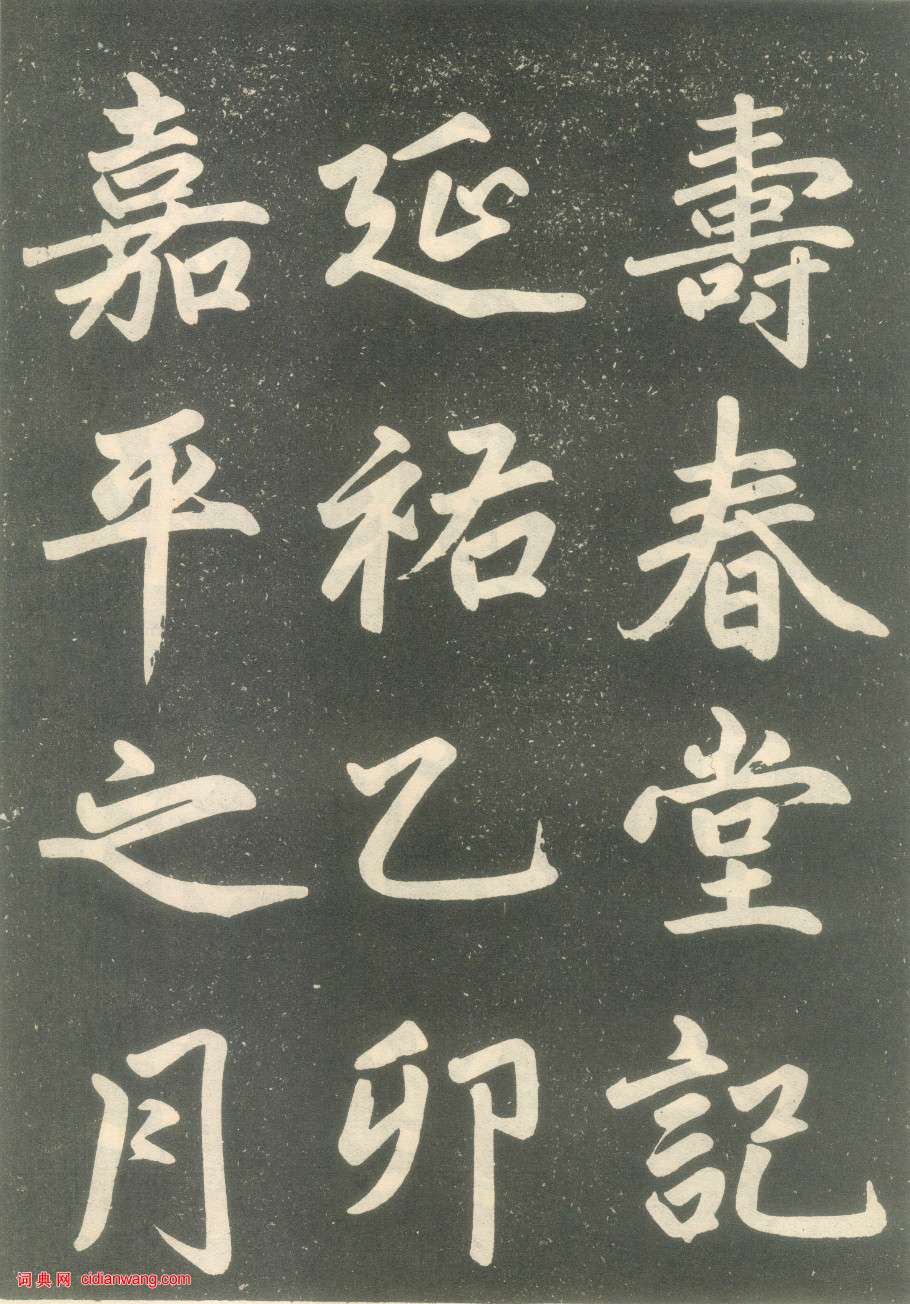 壽春堂記
延祐乙卯
嘉平之月
词典网 cidianwang.com